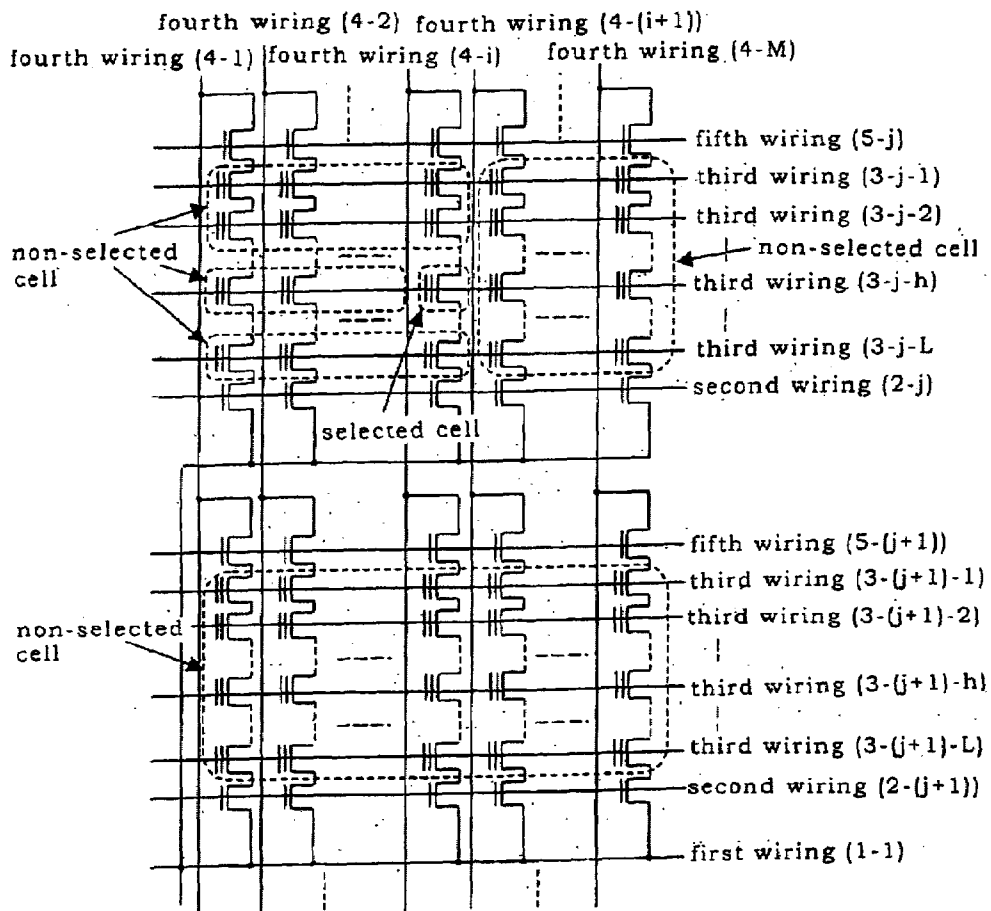 fourth wiring (4-2) fourth wiring (4-(i+1))
fourth wiring (4-1) fourth wiring (4-i) fourth wiring (4-M)
fifth wiring (5-j)
third wiring (3-j-1)
third wiring (3-j-2)
non-selected
cell
non-selected cell
third wiring (3-j-h)
third wiring (3-j-L
second wiring (2-j)
selected cell
fifth wiring (5-(j+1))
third wiring (3-(j+1)-1)
third wiring (3-(j+1)-2)
non-selected
cell
third wiring (3-(j+1)-h)
third wiring (3-(j+1)-L)
second wiring (2-(j+1))
first wiring (1-1)